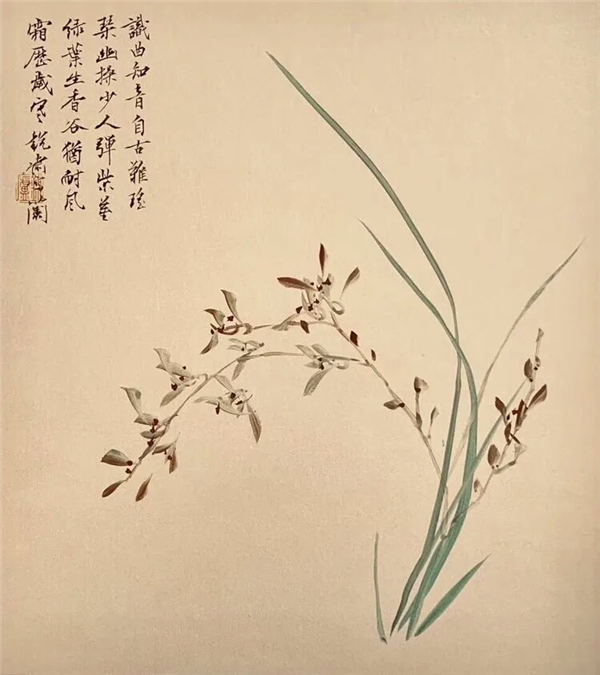 識曲知音自古難瑤
琹幽操少人彈紫莖
綠葉生香谷猶耐風
霜歷歲寒